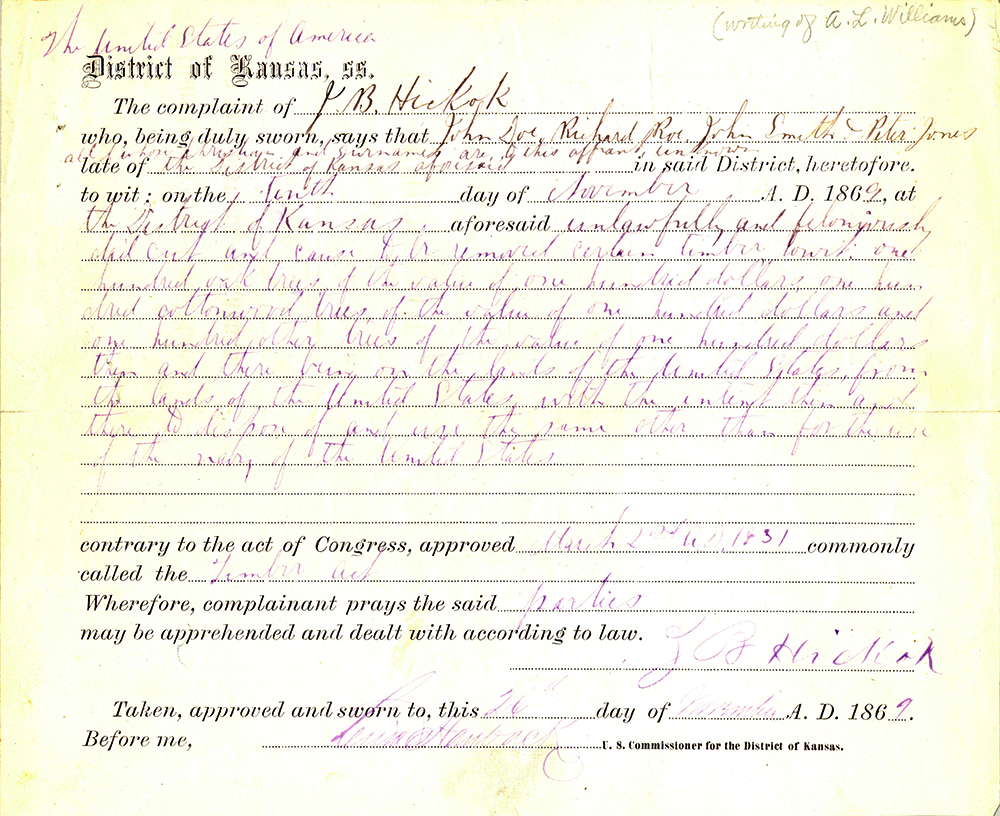 (writing of A. L. Williams)
The United States of America
District of Kansas, ss.
The complaint of J. B. Hickok
who, being duly sworn, says that John Doe, Richard Roe, John Smith & Peter Jones
all whose christian and surnames are to this affiant unknown
late of the District of Kansas aforesaid in said District, heretofore.
to wit: on the Tenth day of November A. D. 1869, at
the District of Kansas aforesaid unlawfully and feloniously
did cut and cause to be removed certain timber, towit, one
hundred oak trees, of the value of one hundred dollars one hun
dred cottonwood trees, of the value of one hundred dollars and
one hundred other trees of the value of one hundred dollars
then and there being on the lands of the United States, from
the lands of the United States, with the intent then and
there to dispose of and use the same other than for the use
of the navy of the United States
contrary to the act of Congress, approved March 2nd A.D. 1831 commonly
called the Timber Act
Wherefore, complainant prays the said parties
may be apprehended and dealt with according to law.
J B Hickok
Taken, approved and sworn to, this 26th day of November A. D. 1869.
Before me, U. S. Commissioner for the District of Kansas.